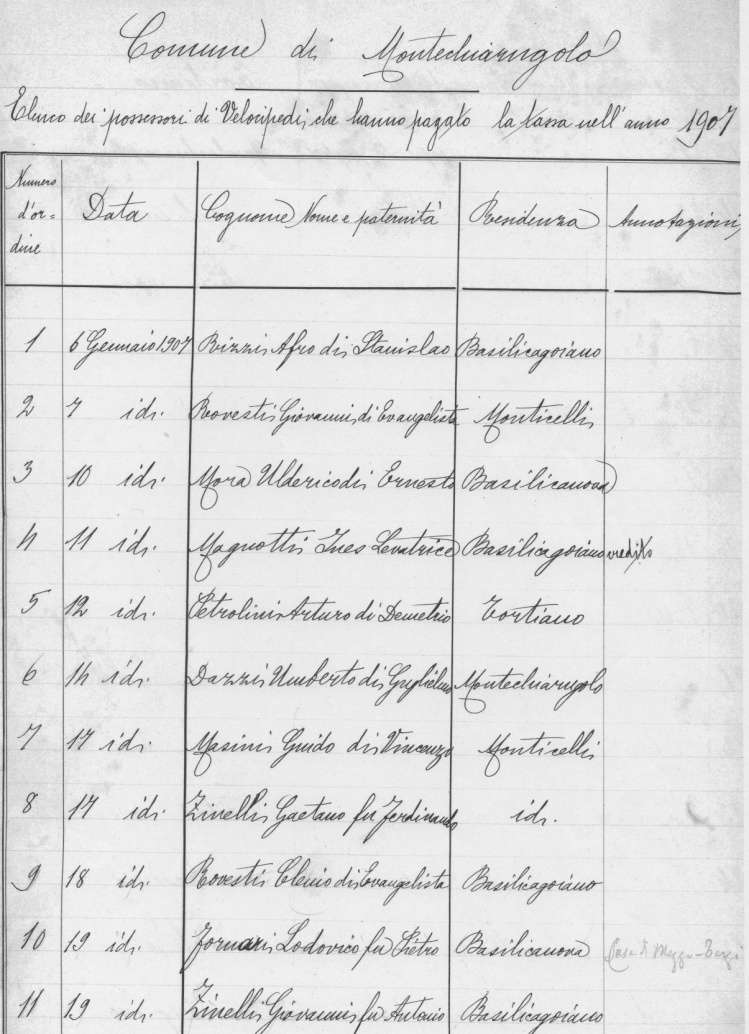 Comune di Montechiarugolo
Elenco dei possessori di Velocipedi che hanno pagato la tassa nell'anno 1907
Numero d'ordine Data Cognome Nome e paternità Residenza Annotazioni
1 6 Gennaio 1907 Rizzi Afro di Stanislao Basilicagoiano
2 7 id. Rovesti Giovanni di Evangelista Monticelli
3 10 id. Mora Ulderico di Ernesto Basilicanova
4 11 id. Magnotti Ines Levatrice Basilicagoiano
5 12 id. Petrolini Arturo di Demetrio Tortiano
6 14 id. Dazzi Umberto di Guglielmo Montechiarugolo
7 17 id. Masini Guido di Vincenzo Monticelli
8 17 id. Zinelli Gaetano fu Ferdinando id.
9 18 id. Rovesti Clenio di Evangelista Basilicagoiano
10 19 id. Fornari Lodovico fu Pietro Basilicanova
11 19 id. Zinelli Giovanni fu Antonio Basilicagoiano